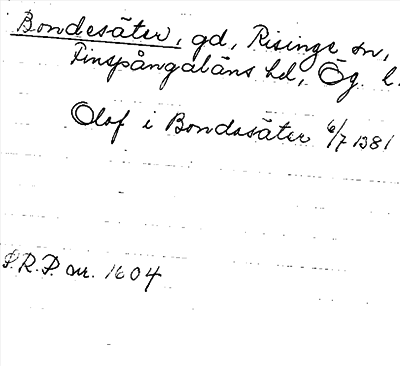 Bondesäter, gd, Risinge sn,
Finspångaläns hd, Ög. l.
Olof i Bondasäter 6/7 1381
P.R.P. nr. 1604